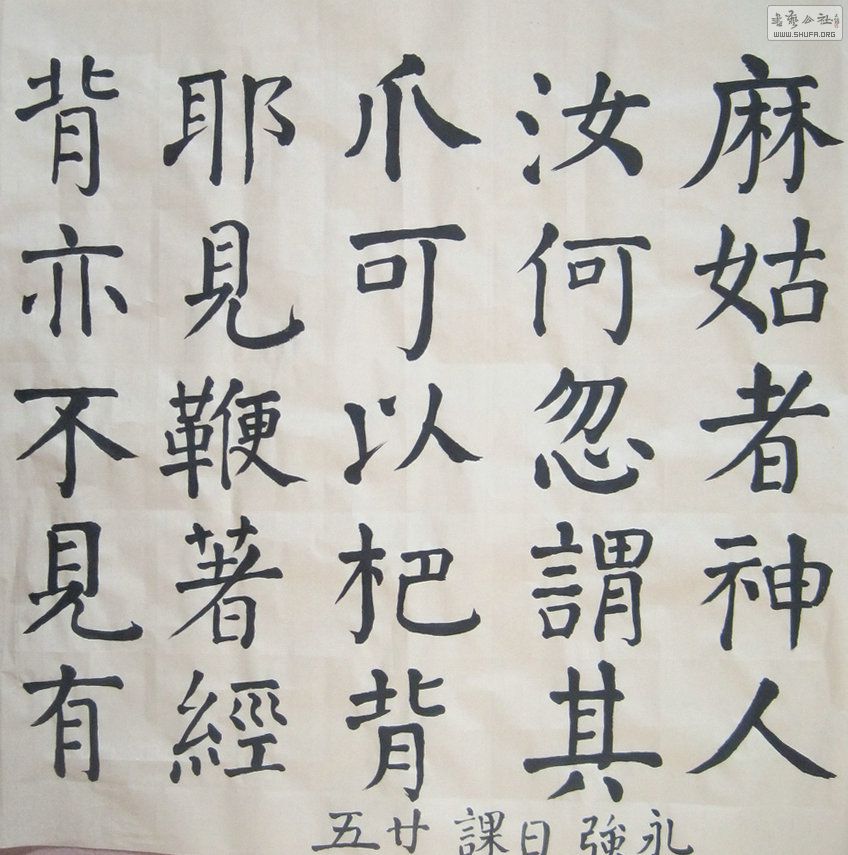 麻姑者神人
汝何忽謂其
爪可以杷背
耶見鞭著經
背亦不見有
永強日課廿五
書藝公社
WWW.SHUFA.ORG